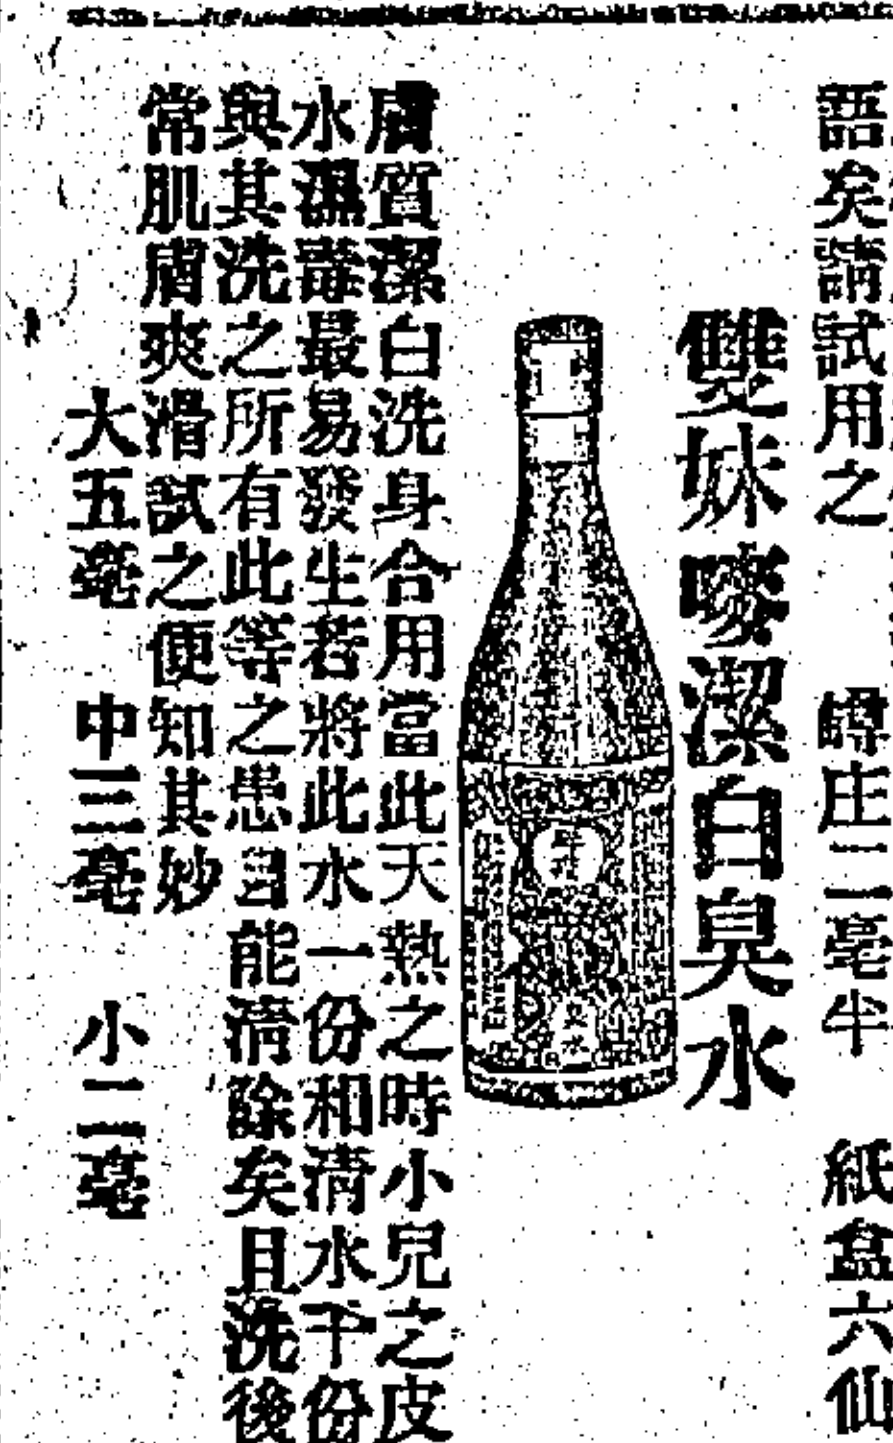 語矣請試用之 罇庄二毫半 紙盒六仙
雙妹嘜潔白臭水
臭水
膚質潔白洗身合用當此天熱之時小兒之皮
水濕毒最易發生若將此水一份和清水千份
與其洗之所有此等之患自能清除矣且洗後
常肌膚爽滑試之便知其妙
大五毫 中三毫 小二毫